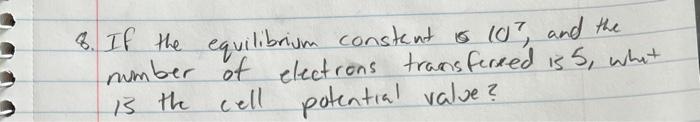 8. If the equilibrium constant is 10⁷, and the
number of electrons transferred is 5, what
is the cell potential value?